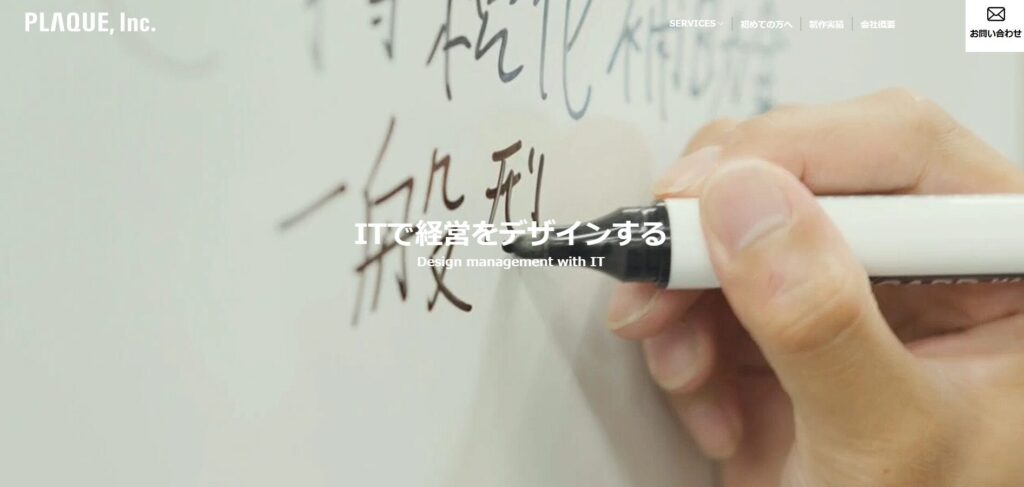 PLAQUE, Inc.
SERVICES
初めての方へ
制作実績
会社概要
お問い合わせ
補助金
一般型
ITで経営をデザインする
Design management with IT